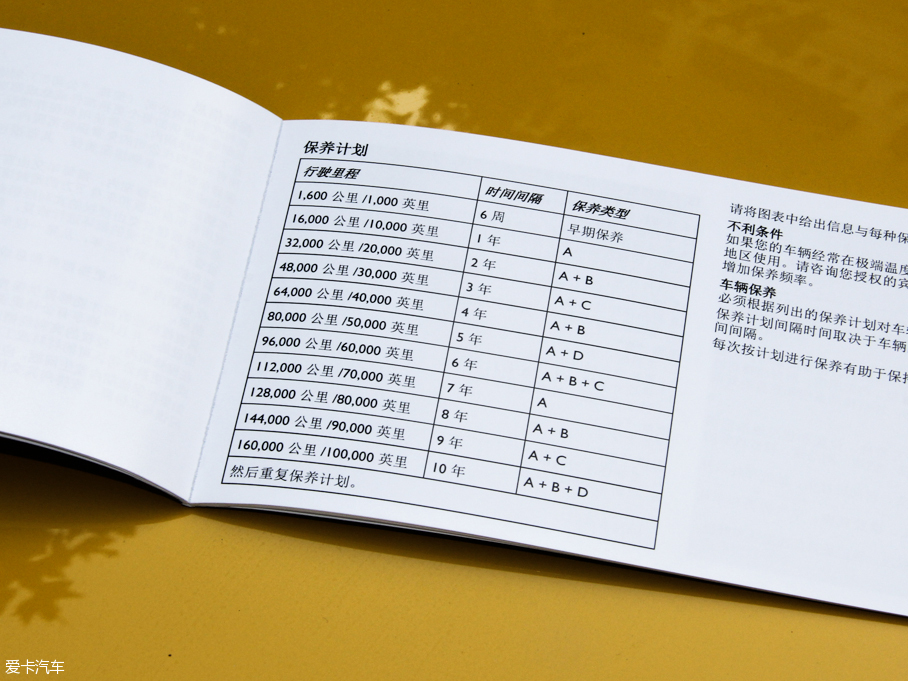 保养计划
行驶里程 时间间隔 保养类型
1,600 公里 /1,000 英里 6 周 早期保养
16,000 公里 /10,000 英里 1 年 A
32,000 公里 /20,000 英里 2 年 A + B
48,000 公里 /30,000 英里 3 年 A + C
64,000 公里 /40,000 英里 4 年 A + B
80,000 公里 /50,000 英里 5 年 A + D
96,000 公里 /60,000 英里 6 年 A + B + C
112,000 公里 /70,000 英里 7 年 A
128,000 公里 /80,000 英里 8 年 A + B
144,000 公里 /90,000 英里 9 年 A + C
160,000 公里 /100,000 英里 10 年 A + B + D
然后重复保养计划。
请将图表中给出信息与每种保
不利条件
如果您的车辆经常在极端温度
地区使用。请咨询您授权的宾
增加保养频率。
车辆保养
必须根据列出的保养计划对车辆
保养计划间隔时间取决于车辆
间间隔。
每次按计划进行保养有助于保持
爱卡汽车